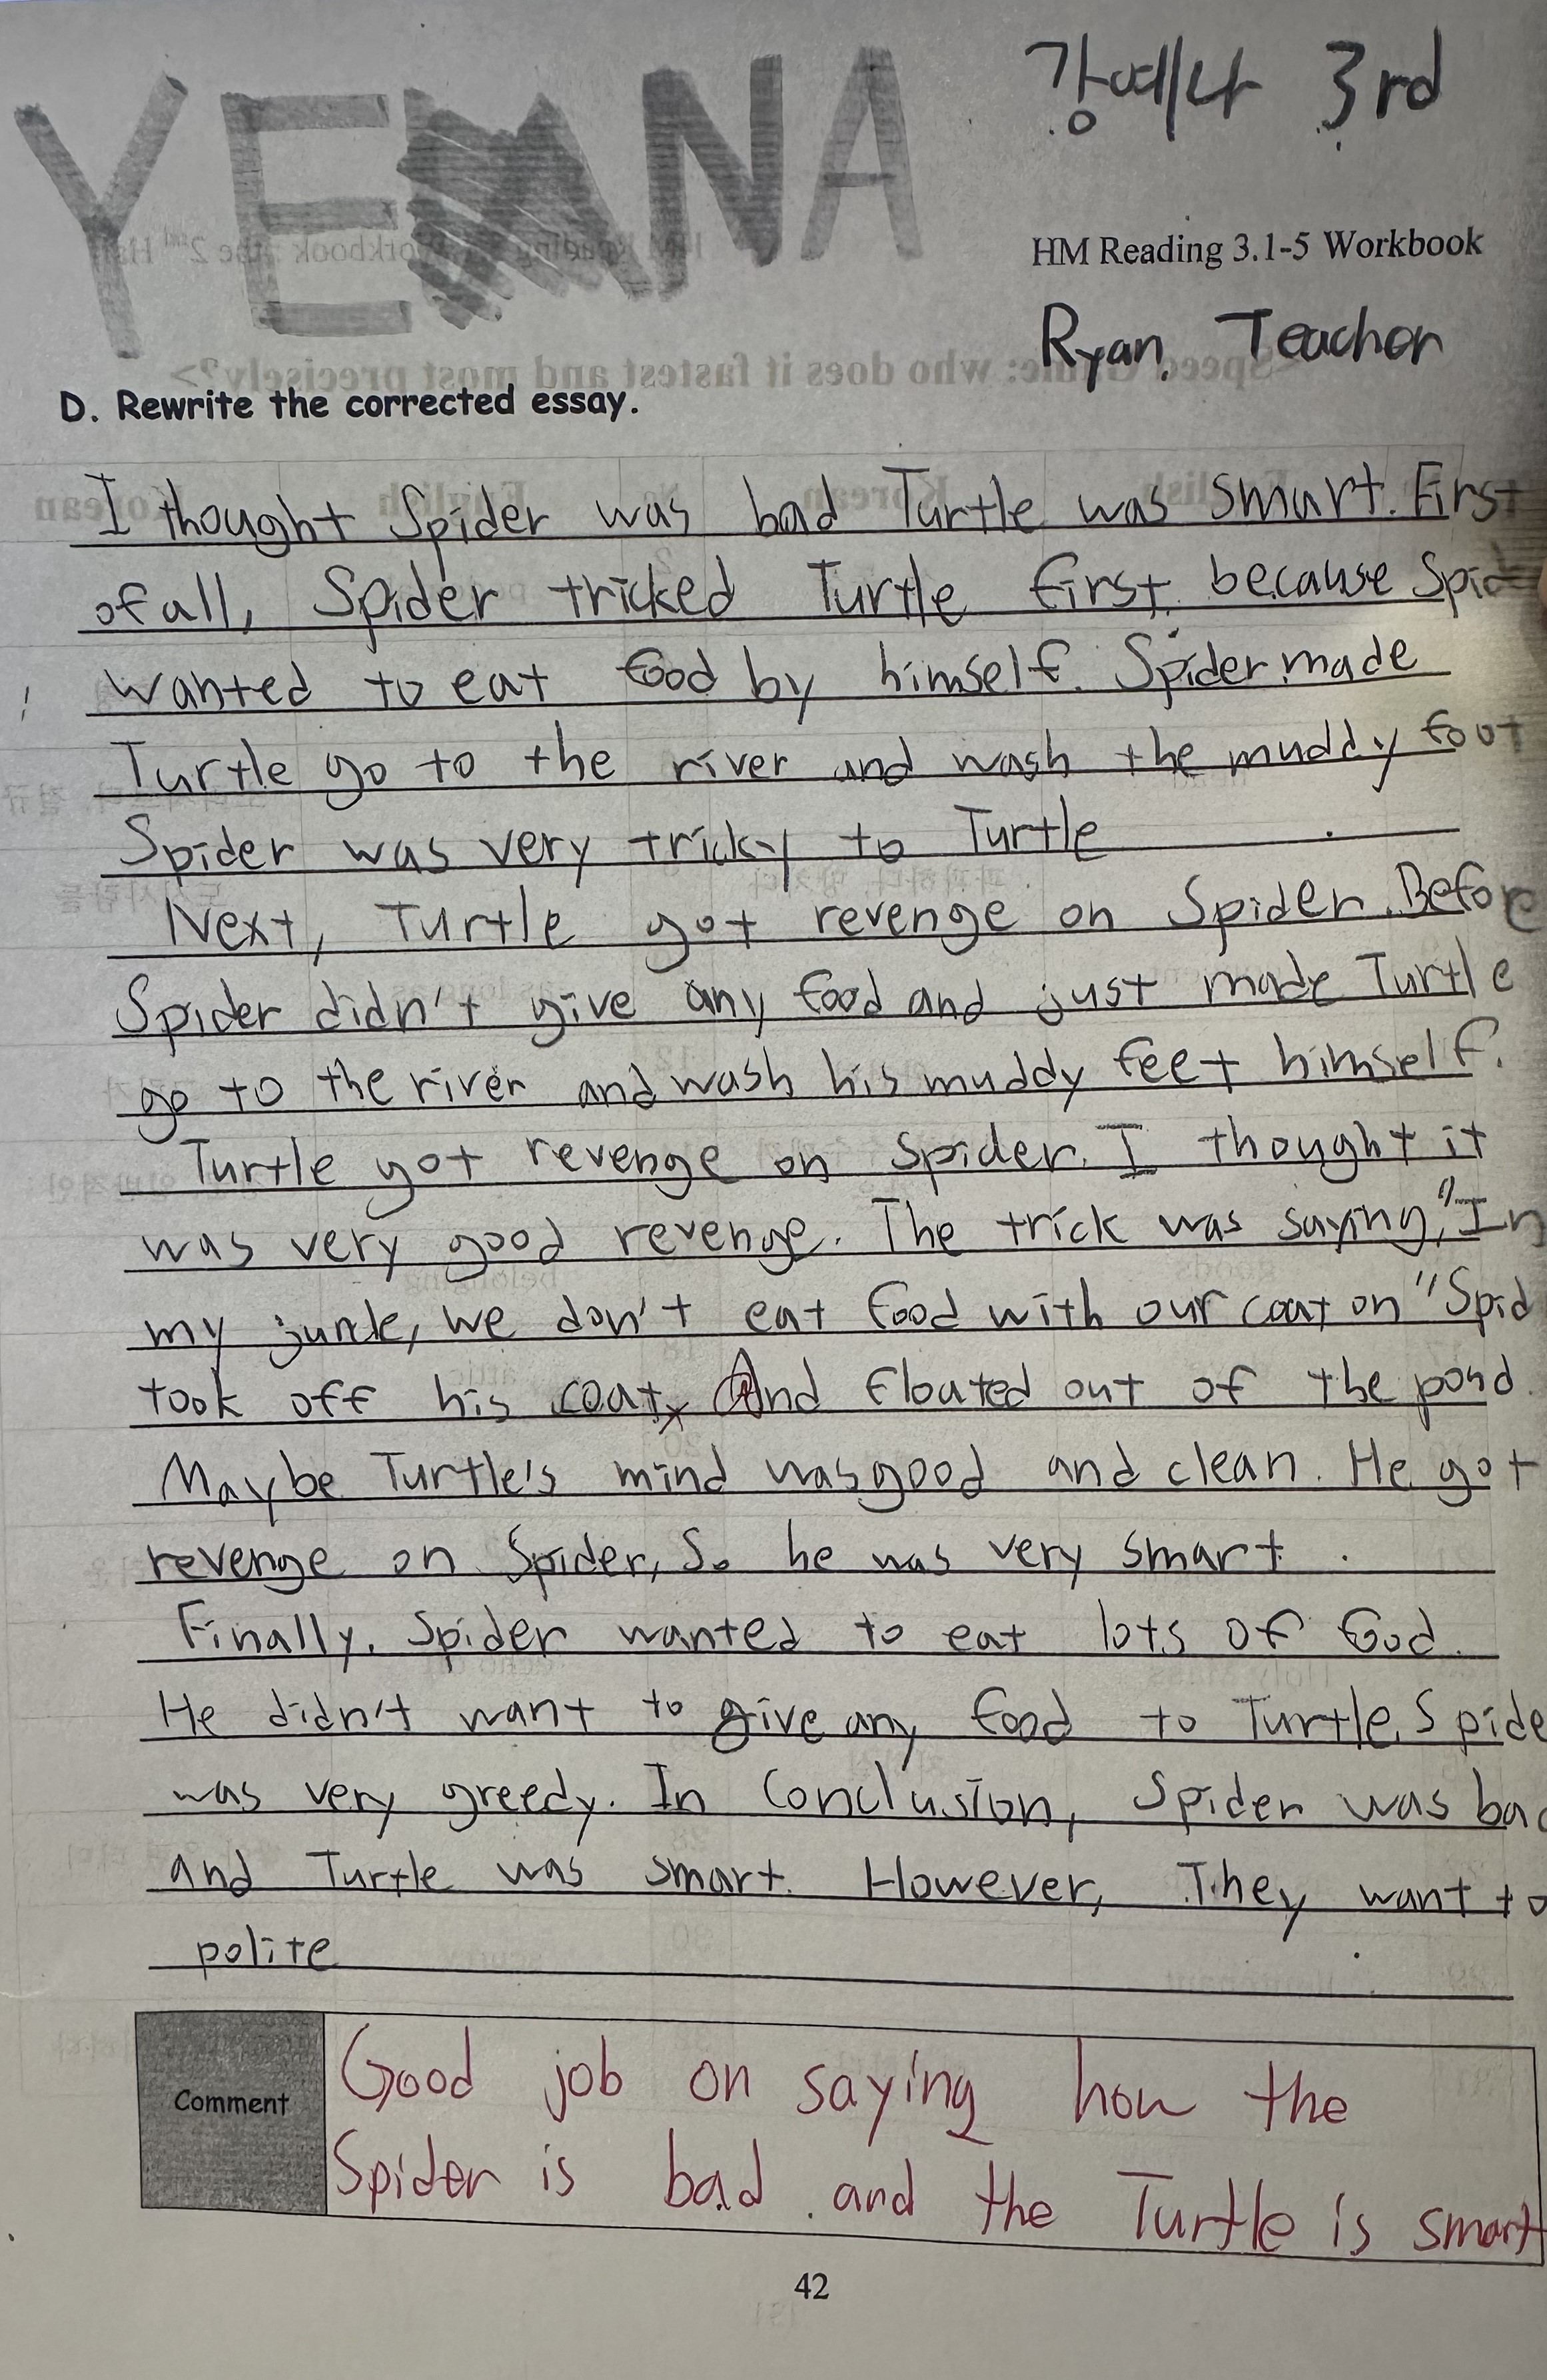 YENNA
강예나 3rd
HM Reading 3.1-5 Workbook
Ryan Teacher
D. Rewrite the corrected essay.
I thought Spider was bad Turtle was smart. First
of all, Spider tricked Turtle first. because Spid
wanted to eat food by himself. Spider made
Turtle go to the river and wash the muddy foot
Spider was very tricky to Turtle .
Next, Turtle got revenge on Spider. Before
Spider didn't give any food and just made Turtle
go to the river and wash his muddy feet himself.
Turtle got revenge on Spider. I thought it
was very good revenge. The trick was saying, "In
my junle, we don't eat food with our coat on" Spid
took off his coat. And floated out of the pond.
Maybe Turtle's mind was good and clean. He got
revenge on Spider, So he was very smart .
Finally, Spider wanted to eat lots of food.
He didn't want to give any food to Turtle. Spide
was very greedy. In Conclusion, Spider was bad
and Turtle was smart. However, They want to
polite .
Comment
Good job on saying how the
Spider is bad and the Turtle is smart
42